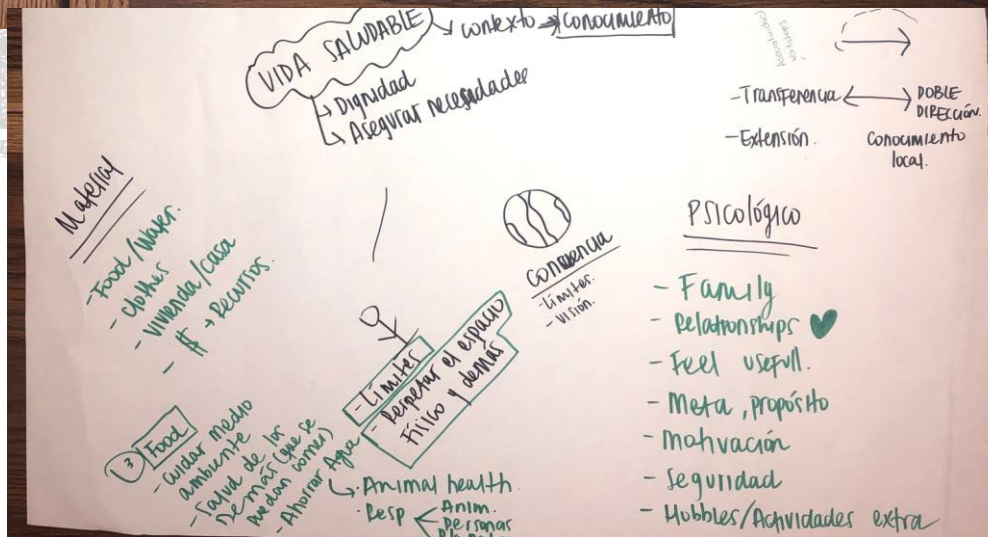 VIDA SALUDABLE
↘ contexto → conocimiento
↳ Dignidad
↳ Asegurar necesidades
- Transferencia ↔ DOBLE DIRECCIÓN.
- Extensión.
Conocimiento
local.
Material
- Food/Water.
- clothes
- vivienda/casa
- $ → Recursos.
- Límites
- Respetar el espacio
Físico y demás
-Límites.
- Visión.
Psicológico
- Family
- Relationships ♥
- Feel usefull.
- Meta, propósito
- motivación
- Seguridad
- Hobbies/Actividades extra
3 Food
- Cuidar medio
ambiente
- Salud de los
demás (que se
puedan comer)
- Ahorrar Agua
↳ Animal health
- Resp < Anim.
Personas